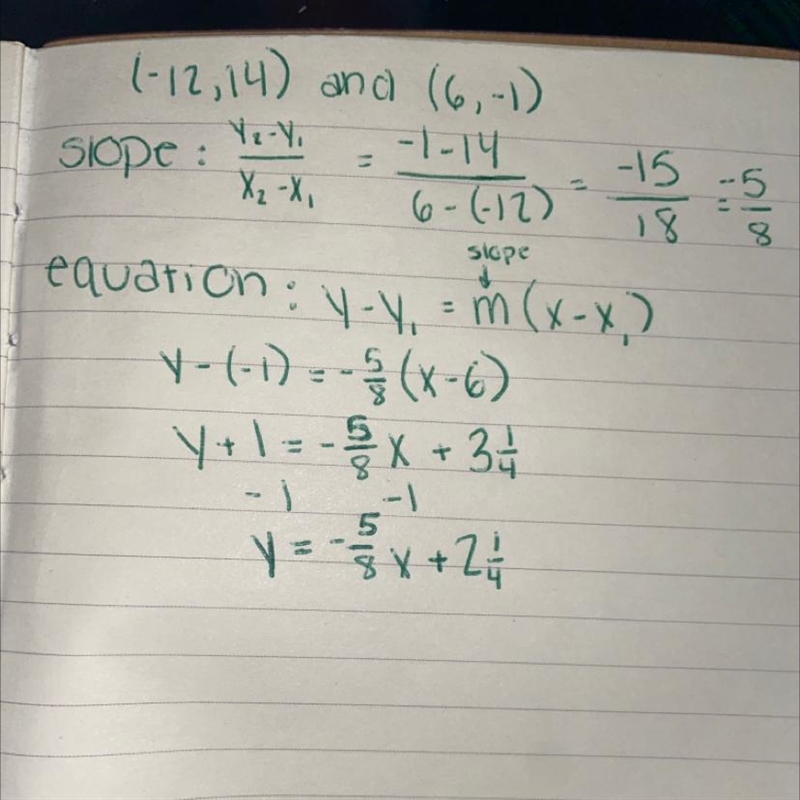 (-12,14) and (6,-1)
slope: y₂-y₁/x₂-x₁ = -1-14/6-(-12) = -15/18 = -5/8
slope
↓
equation: y-y₁ = m(x-x₁)
y-(-1) = -5/8(x-6)
y+1 = -5/8x + 3 1/4
-1 -1
y = -5/8x + 2 1/4